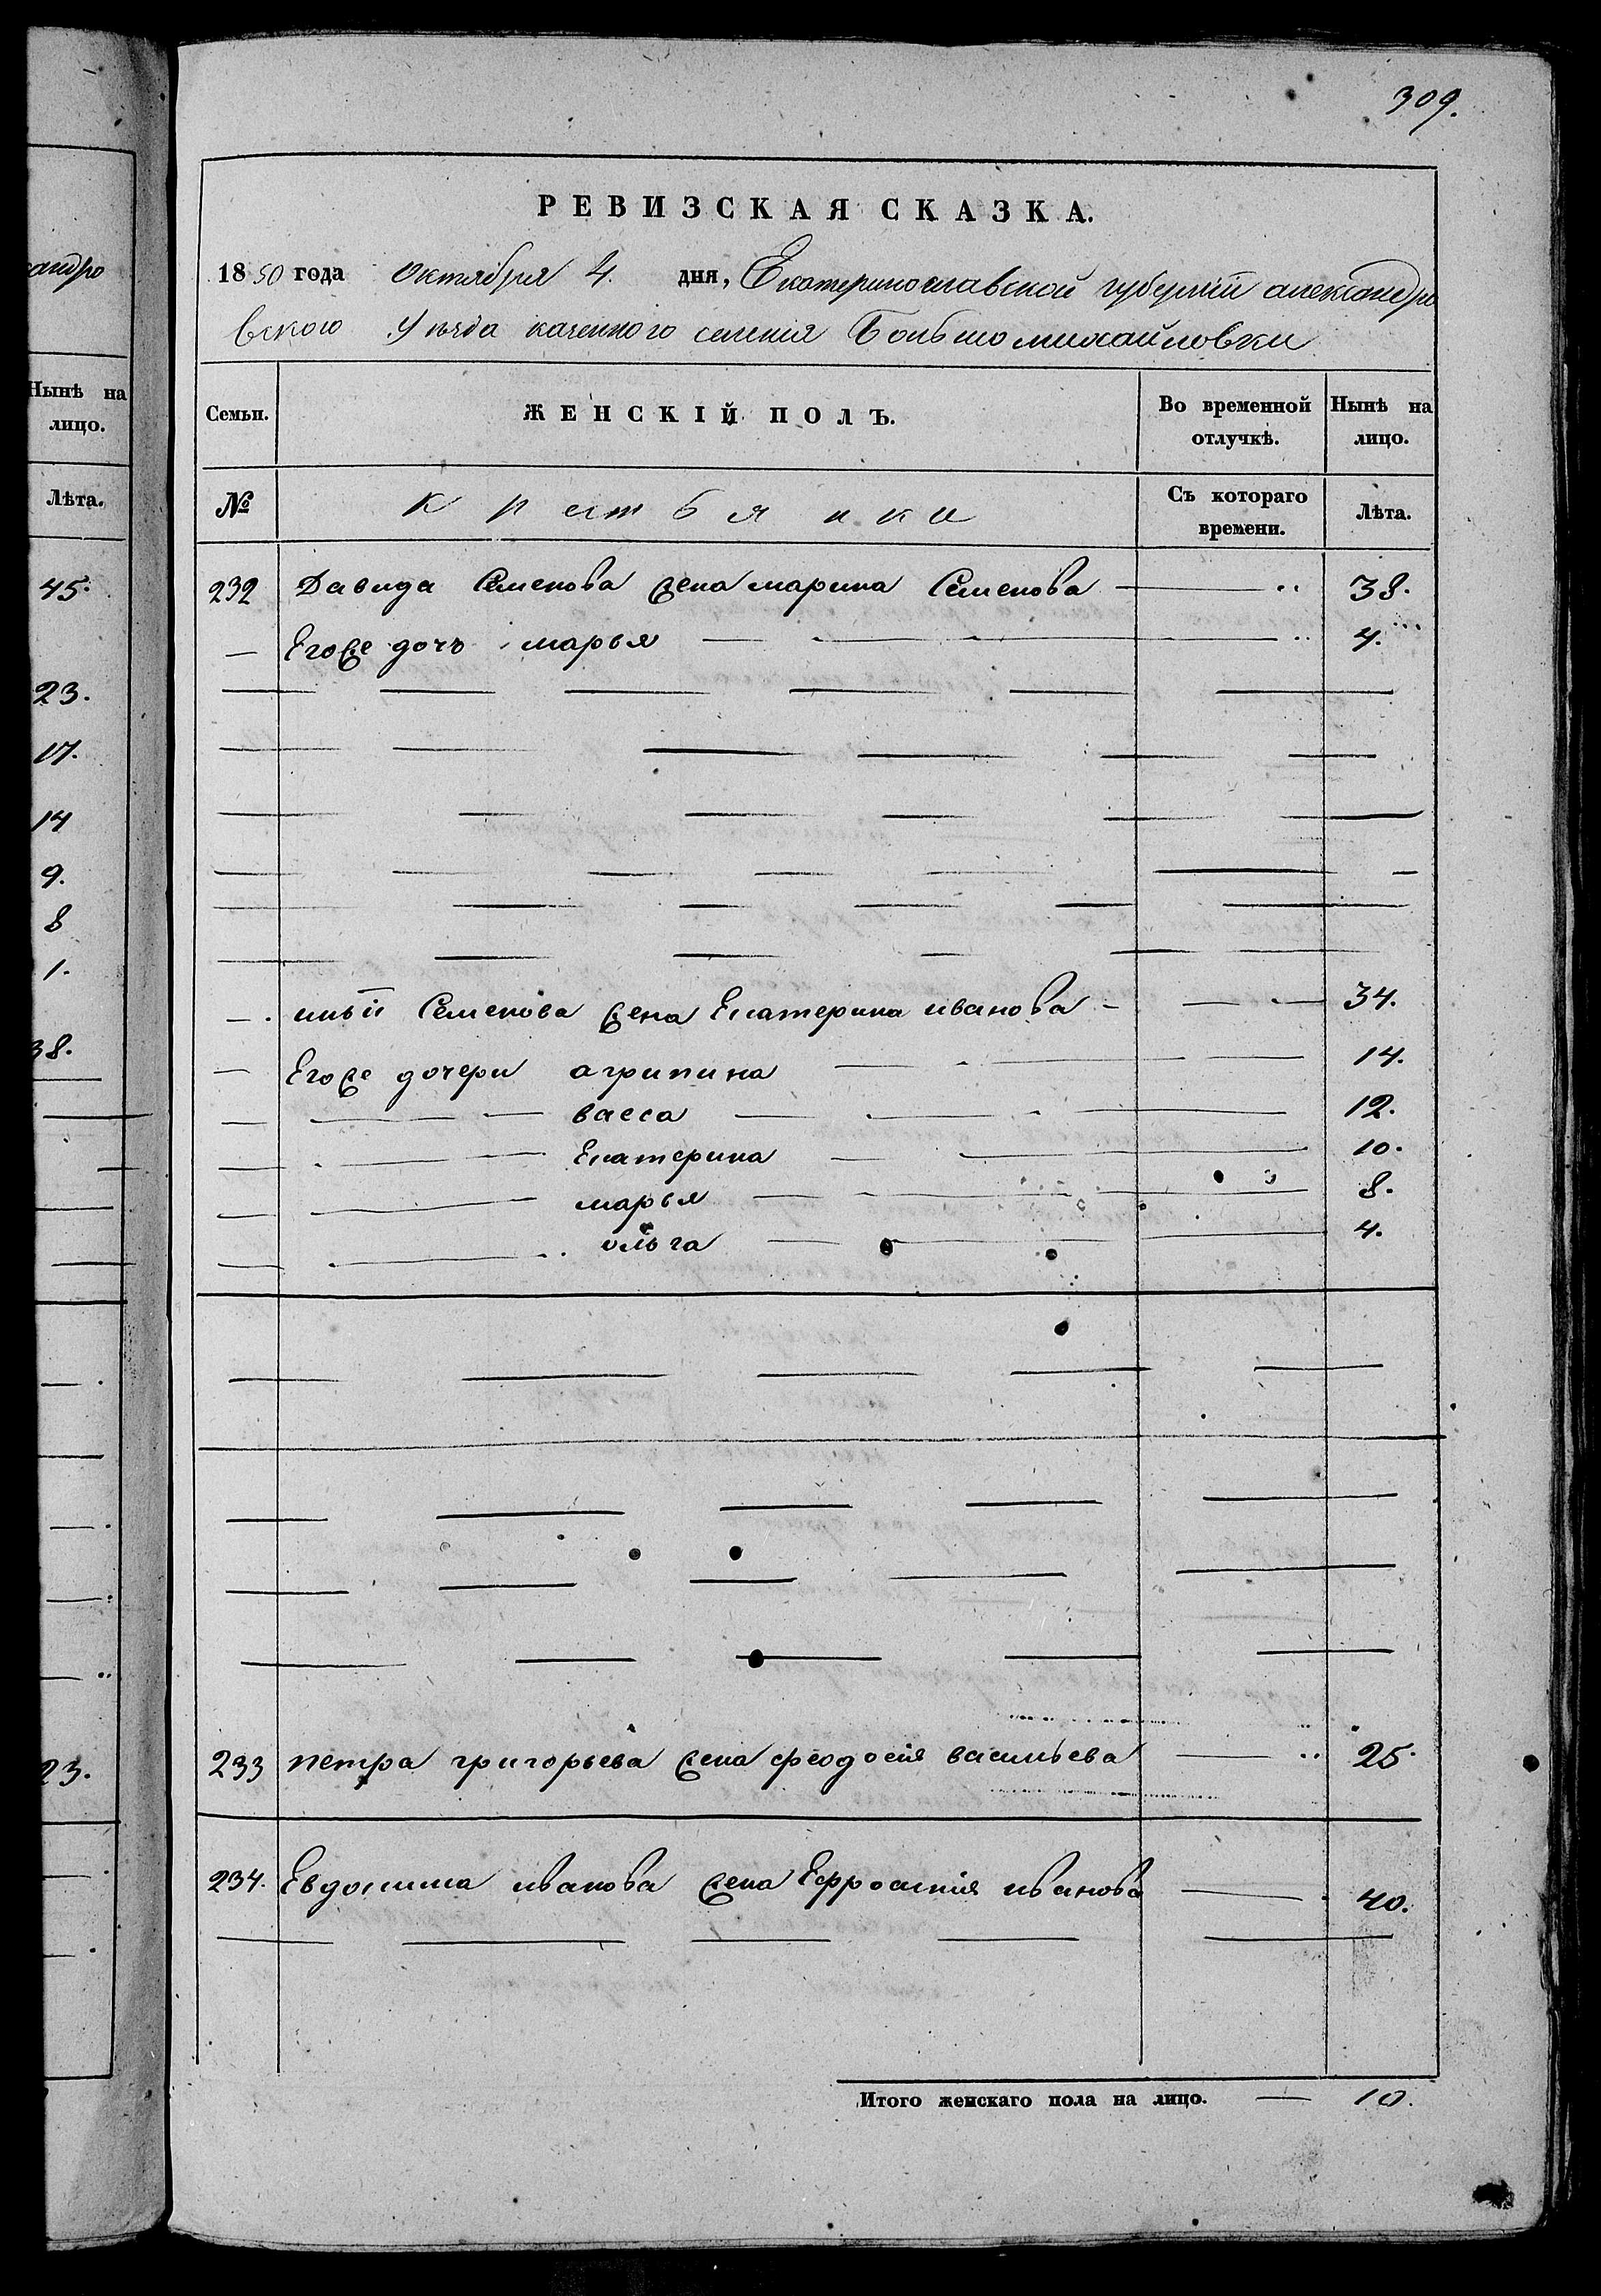 309.
РЕВИЗСКАЯ СКАЗКА.
1850 года октября 4. дня, Екатеринославской губерніи александро
вского уѣзда казенного селенія Большомихайловки
Семьи. ЖЕНСКІЙ ПОЛЪ. Во временной отлучкѣ. Нынѣ на лицо.
№ крестьянки Съ котораго времени. Лѣта.
232 Давида Семенова жена марина Семенова 38.
Егоже дочь марья 4.
ильи Семенова жена Екатерина иванова 34.
Егоже дочери агрипина 14.
васса 12.
Екатерина 10.
марья 8.
ольга 4.
233 петра григорьева жена феодосія васильева 25.
234. Евдокима иванова жена Ефросинія иванова 40.
Итого женскаго пола на лицо. 10.
андро
Нынѣ на
лицо.
Лѣта.
45.
23.
17.
14
9.
8
1.
38.
23.